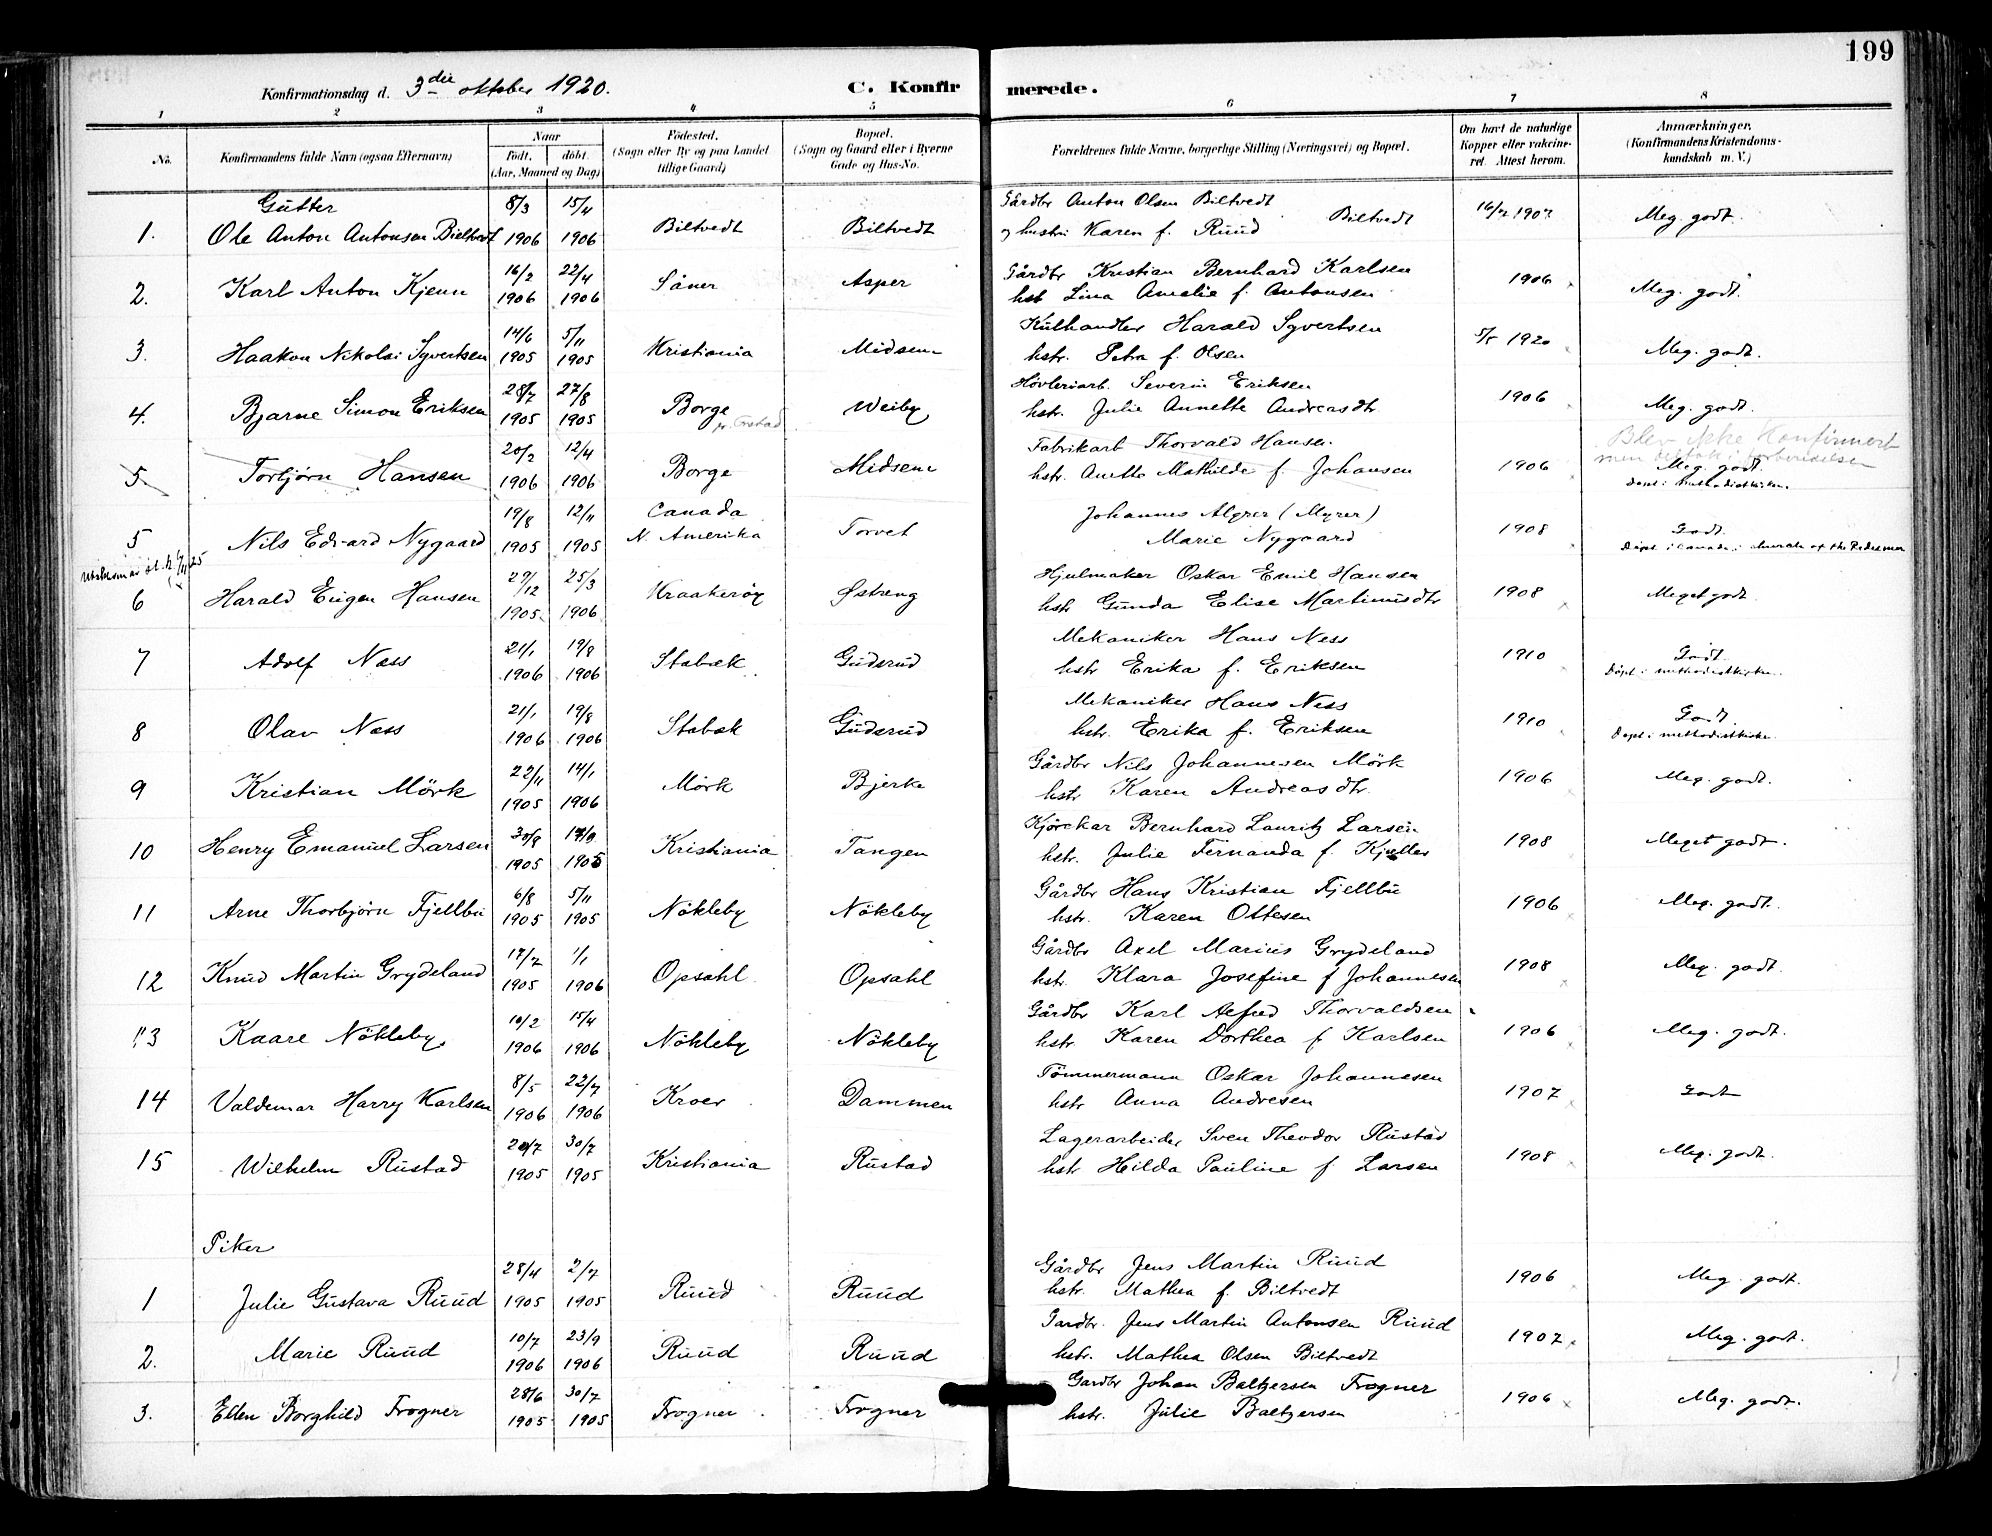 199
Konfirmationsdag d. 3die oktober 1920. C. Konfirmerede.
1 2 3 4 5 6 7 8
No. Konfirmandens fulde Navn (ogsaa Efternavn) Naar födt, döbt. (Aar, Maaned og Dag) Födested. (Sogn eller By og paa Landet tillige Gaard) Bopæl. (Sogn og Gaard eller i Byerne Gade og Hus-No. Forældrenes fulde Navne, borgerlige Stilling (Næringsvei) og Bopæl. Om havt de naturlige Kopper eller vakcineret. Attest herom. Anmærkninger. (Konfirmandens Kristendomskundskab m. V.)
Gutter
1. Ole Anton Antonsen Biltvedt 8/3 1906 15/4 1906 Biltvedt Biltvedt Gårdbr Anton Olsen Biltvedt Biltvedt
og hustru Karen f. Ruud Meg. godt.
2. Karl Anton Kjenn 16/2 1906 22/4 1906 Såner Asper Gårdbr Kristian Bernhard Karlsen 1906 Meg. godt.
hst Lina Amalie f. Antonsen
3. Haakon Nikolai Syvertsen 14/6 1905 5/11 1905 Kristiania Midsem Kulhandler Harald Syvertsen 5/5 1920 Meg. godt.
hstr. Petra f. Olsen
4. Bjarne Simon Eriksen 28/7 1905 27/8 1905 Borge Weiby Høvleriarb. Severin Eriksen 1906 Meg. godt.
hstr. Julie Annette Andreasdtr.
5 Torbjørn Hansen 20/2 1906 12/4 1906 Borge Midsem Fabrikarb Thorvald Hansen 1906 Blev ikke Konfirmert
men deltok i forberedelsen
hstr. Anette Mathilde f. Johansen Meg. godt.
Døpt i methodistkirken.
5 Nils Edvard Nygaard 19/8 1905 12/11 1905 Canada N. Amerika Torvet Johannes Algrer (Myrer) 1908 Godt.
Marie Nygaard Døpt i Canada i church of the Redeemer
6 Harald Eugen Hansen 29/12 1905 25/3 1906 Kraakerøy Østeng Hjulmaker Oskar Emil Hansen 1908 Meget godt
hstr Gunda Elise Martinusdtr
7 Adolf Næss 21/1 1906 19/8 1906 Stabæk Guderud Mekaniker Hans Ness 1910 Godt.
hstr Erika f. Eriksen Døpt i methodistkirken.
8 Olav Næss 21/1 1906 19/8 1906 Stabæk Guderud Mekaniker Hans Ness 1910 Godt.
hstr. Erika f. Eriksen Døpt i methodistkirke.
9 Kristian Mörk 22/11 1905 14/1 1906 Mörk Bjerke Gårdbr Nils Johannesen Mörk 1906 Meg. godt.
hstr Karen Andreasdtr.
10 Henry Emanuel Larsen 1905 1905 Kristiania Tangen Kjørekar Bernhard Lauritz Larsen 1908 Meget godt.
hstr. Julie Fernanda f. Kjøller
11 Arne Thorbjörn Fjellbu 6/8 1905 5/11 1905 Nökleby Nökleby Gårdbr Hans Kristian Fjellbu 1906 Meg. godt.
hstr. Karen Ottesen
12 Knud Martin Grydeland 17/7 1905 1/1 1906 Opsahl Opsahl Gårdbr Axel Marius Grydeland 1908 Meg. godt.
hstr. Klara Josefine f Johannesen
13 Kaare Nökleby 10/2 1906 15/4 1906 Nökleby Nökleby Gårdbr Karl Alfred Thorvaldsen 1906 Meg. godt.
hstr. Karen Dorthea f Karlsen
14 Valdemar Harry Karlsen 8/5 1906 22/7 1906 Kroer Dammen Tömmermann Oskar Johannesen 1907 Godt
hstr Anna Andresen
15 Wilhelm Rustad 20/7 1905 30/7 1905 Kristiania Rustad Lagerarbeider Sven Theodor Rustad 1908 Meg. godt.
hstr Hilda Pauline f Larsen
Piker
1 Julie Gustava Ruud 28/4 1905 2/7 1905 Ruud Ruud Gårdbr Jens Martin Ruud 1906 Meg. godt.
hstr. Mathea f. Biltvedt
2. Marie Ruud 10/7 1906 23/9 1906 Ruud Ruud Gardbr. Jens Martin Antonsen Ruud 1907 Meg. godt.
hstr. Mathea Olsen Biltvedt
3. Ellen Borghild Frogner 28/6 1905 30/7 1905 Frogner Frogner Gardbr Johan Baltzersen Frogner 1906 Meg. godt.
hstr. Julie Baltzersen